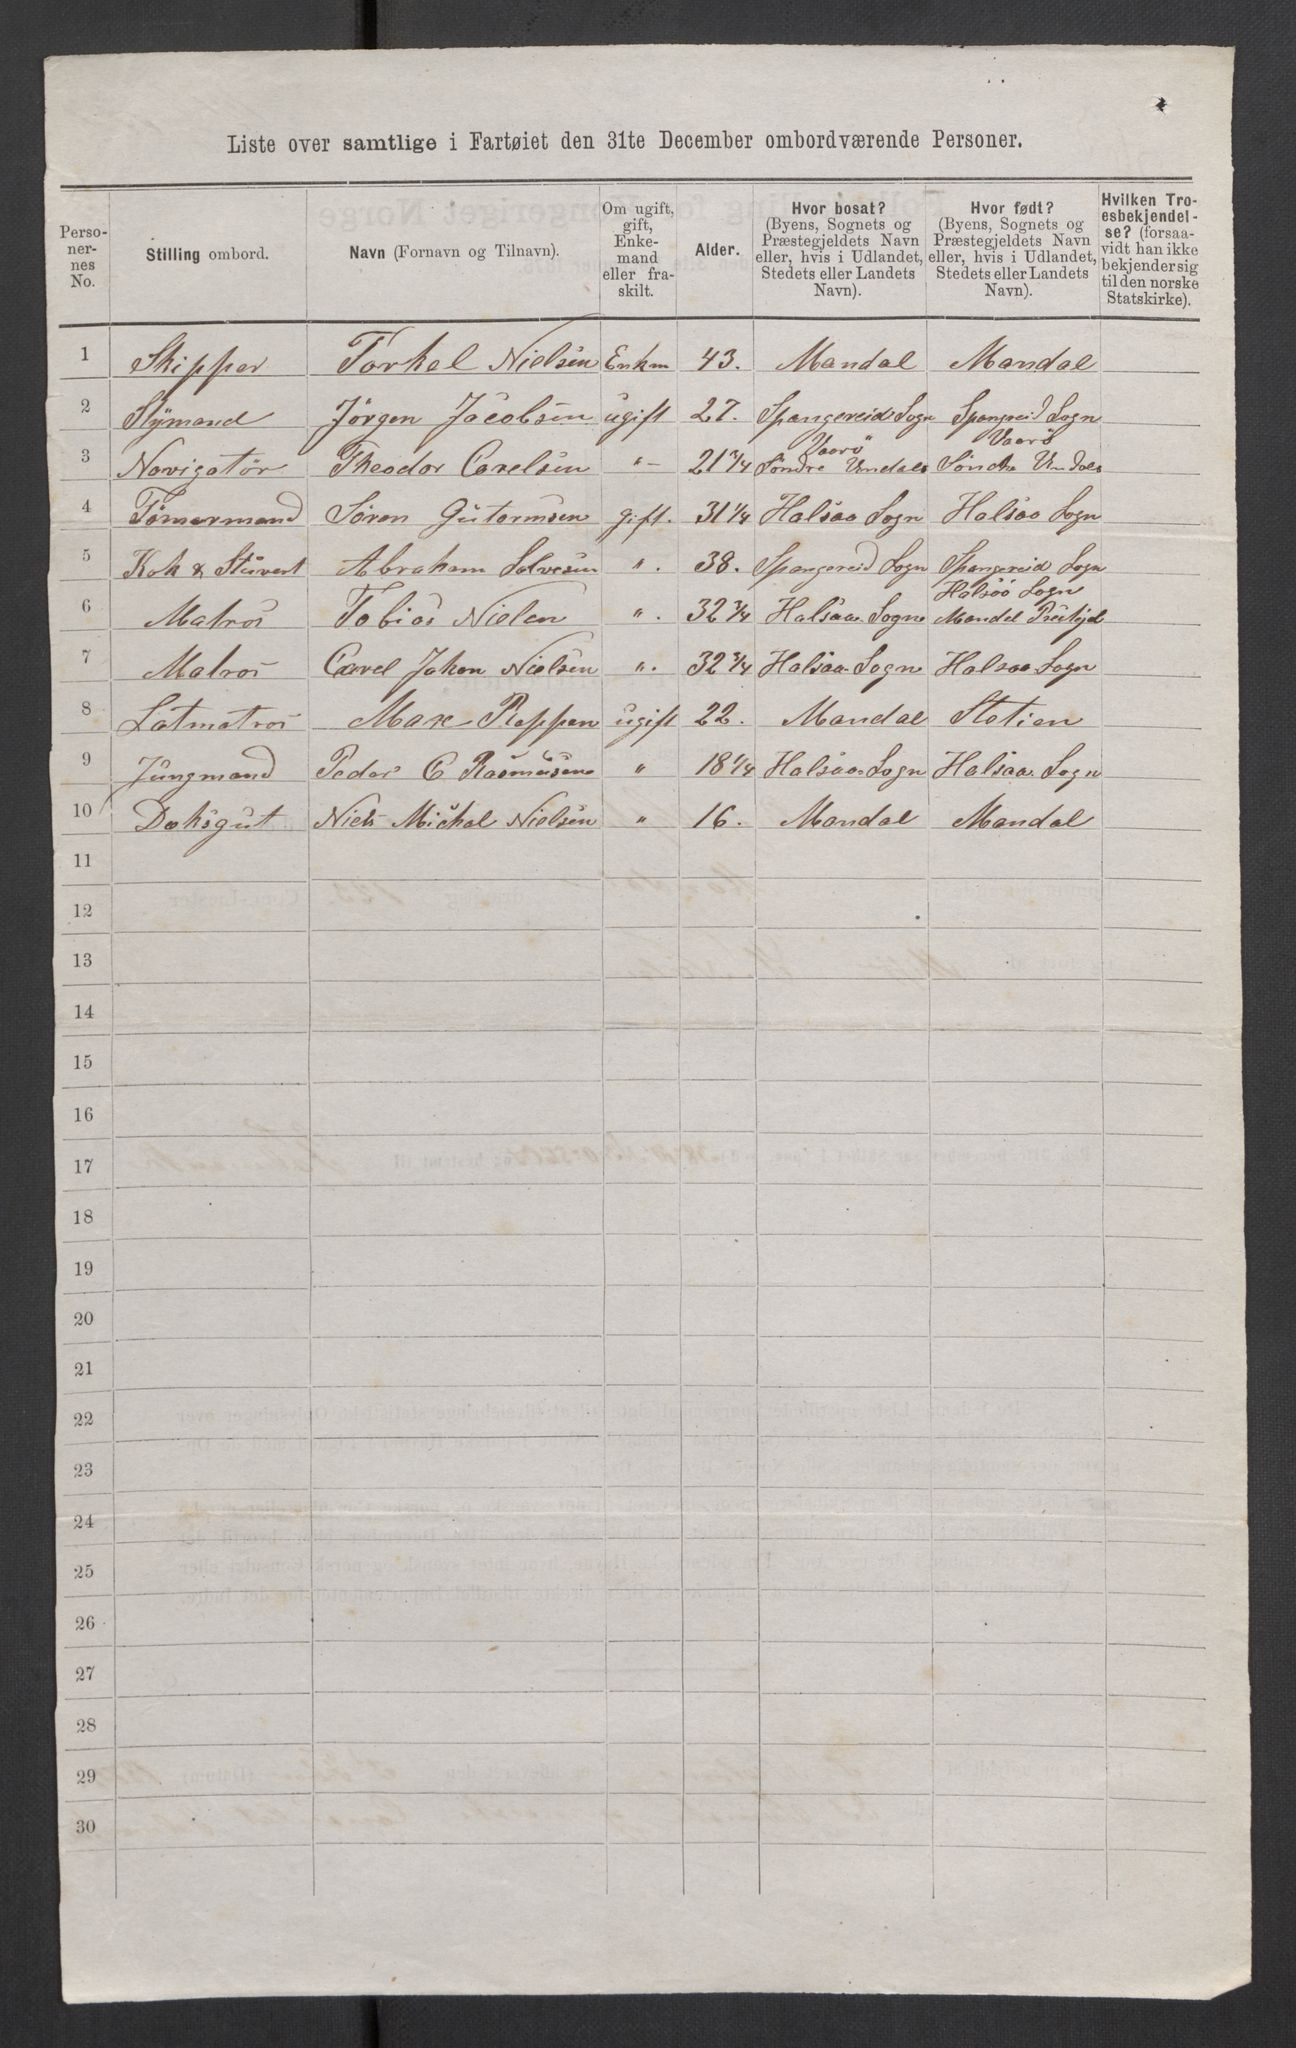 Liste over samtlige i Fartøiet den 31te December ombordværende Personer.
Perso-
ner-
nes
No.
Stilling ombord.
Navn (Fornavn og Tilnavn).
Om ugift,
gift,
Enke-
mand
eller fra-
skilt.
Alder.
Hvor bosat?
(Byens, Sognets og
Præstegjeldets Navn
eller, hvis i Udlandet,
Stedets eller Landets
Navn).
Hvor født?
(Byens, Sognets og
Præstegjeldets Navn
eller, hvis i Udlandet,
Stedets eller Landets
Navn).
Hvilken Tro-
esbekjendel-
se? (forsaa-
vidt han ikke
bekjender sig
til den norske
Statskirke).
1 Skipper Torkel Nielsen Enkm 43. Mandal Mandal
2 Stymand Jörgen Jacobsen ugift 27. Spangereid Sogn Spangreid Sogn
Vaarö Vaarö
3 Navigatör Theodor Carelsen "- 21 3/4 Söndre Undals Söndre Undals
4 Tömermand Sören Gutormsen gift. 31 1/4 Halsaa Sogn Halsaa Sogn
5 Kok & Stüvert Abraham Salvesen ". 38. Spangereid Sogn Spangereid Sogn
Halsaa Sogn
6 Matros Tobias Nielen ". 32 3/4 Halsaa Sogn Mandal
7 Matros Carel Johan Nielsen ". 32 3/4 Halsaa Sogn Halsaa Sogn
8 Letmatros Max Reppen ugift 22. Mandal Statien
9 Jüngmand Peder C Rasmüsen " 18 1/4 Halsaa Sogn Halsaa Sogn
10 Deksgüt Niels Michal Nielsen " 16. Mandal Mandal
11
12
13
14
15
16
17
18
19
20
21
22
23
24
25
26
27
28
29
30